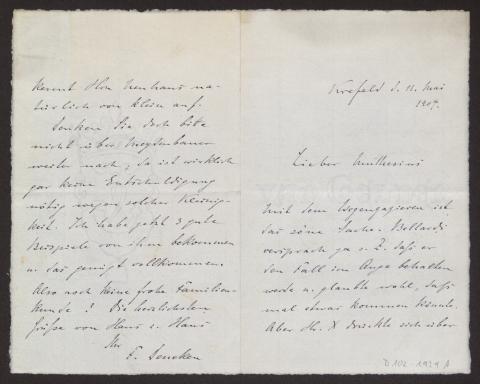 Krefeld d. 11. Mai
1907.
Lieber Muthesius
Mit dem Wegengagieren ist
das so'ne Sache.
versprach ja s. Z. daß er
den Fall im Auge behalten
werde u. glaubte wohl, daß
mal etwas kommen könnte.
Aber Hr. X drückte sich über
D 102 - 1929 A
kennt Hrn Neuhaus na-
türlich von klein auf.
Denken Sie doch bitte
nicht über
weiter nach, da ist wirklich
gar keine Entschuldigung
nötig wegen solcher Kleinig-
keit. Ich habe jetzt 3 gute
Beispiele von ihm bekommen
u. das genügt vollkommen.
Also noch keine frohe Familien-
kunde! Die herzlichsten
Grüße von Haus z. Haus
Ihr
F. Deneken